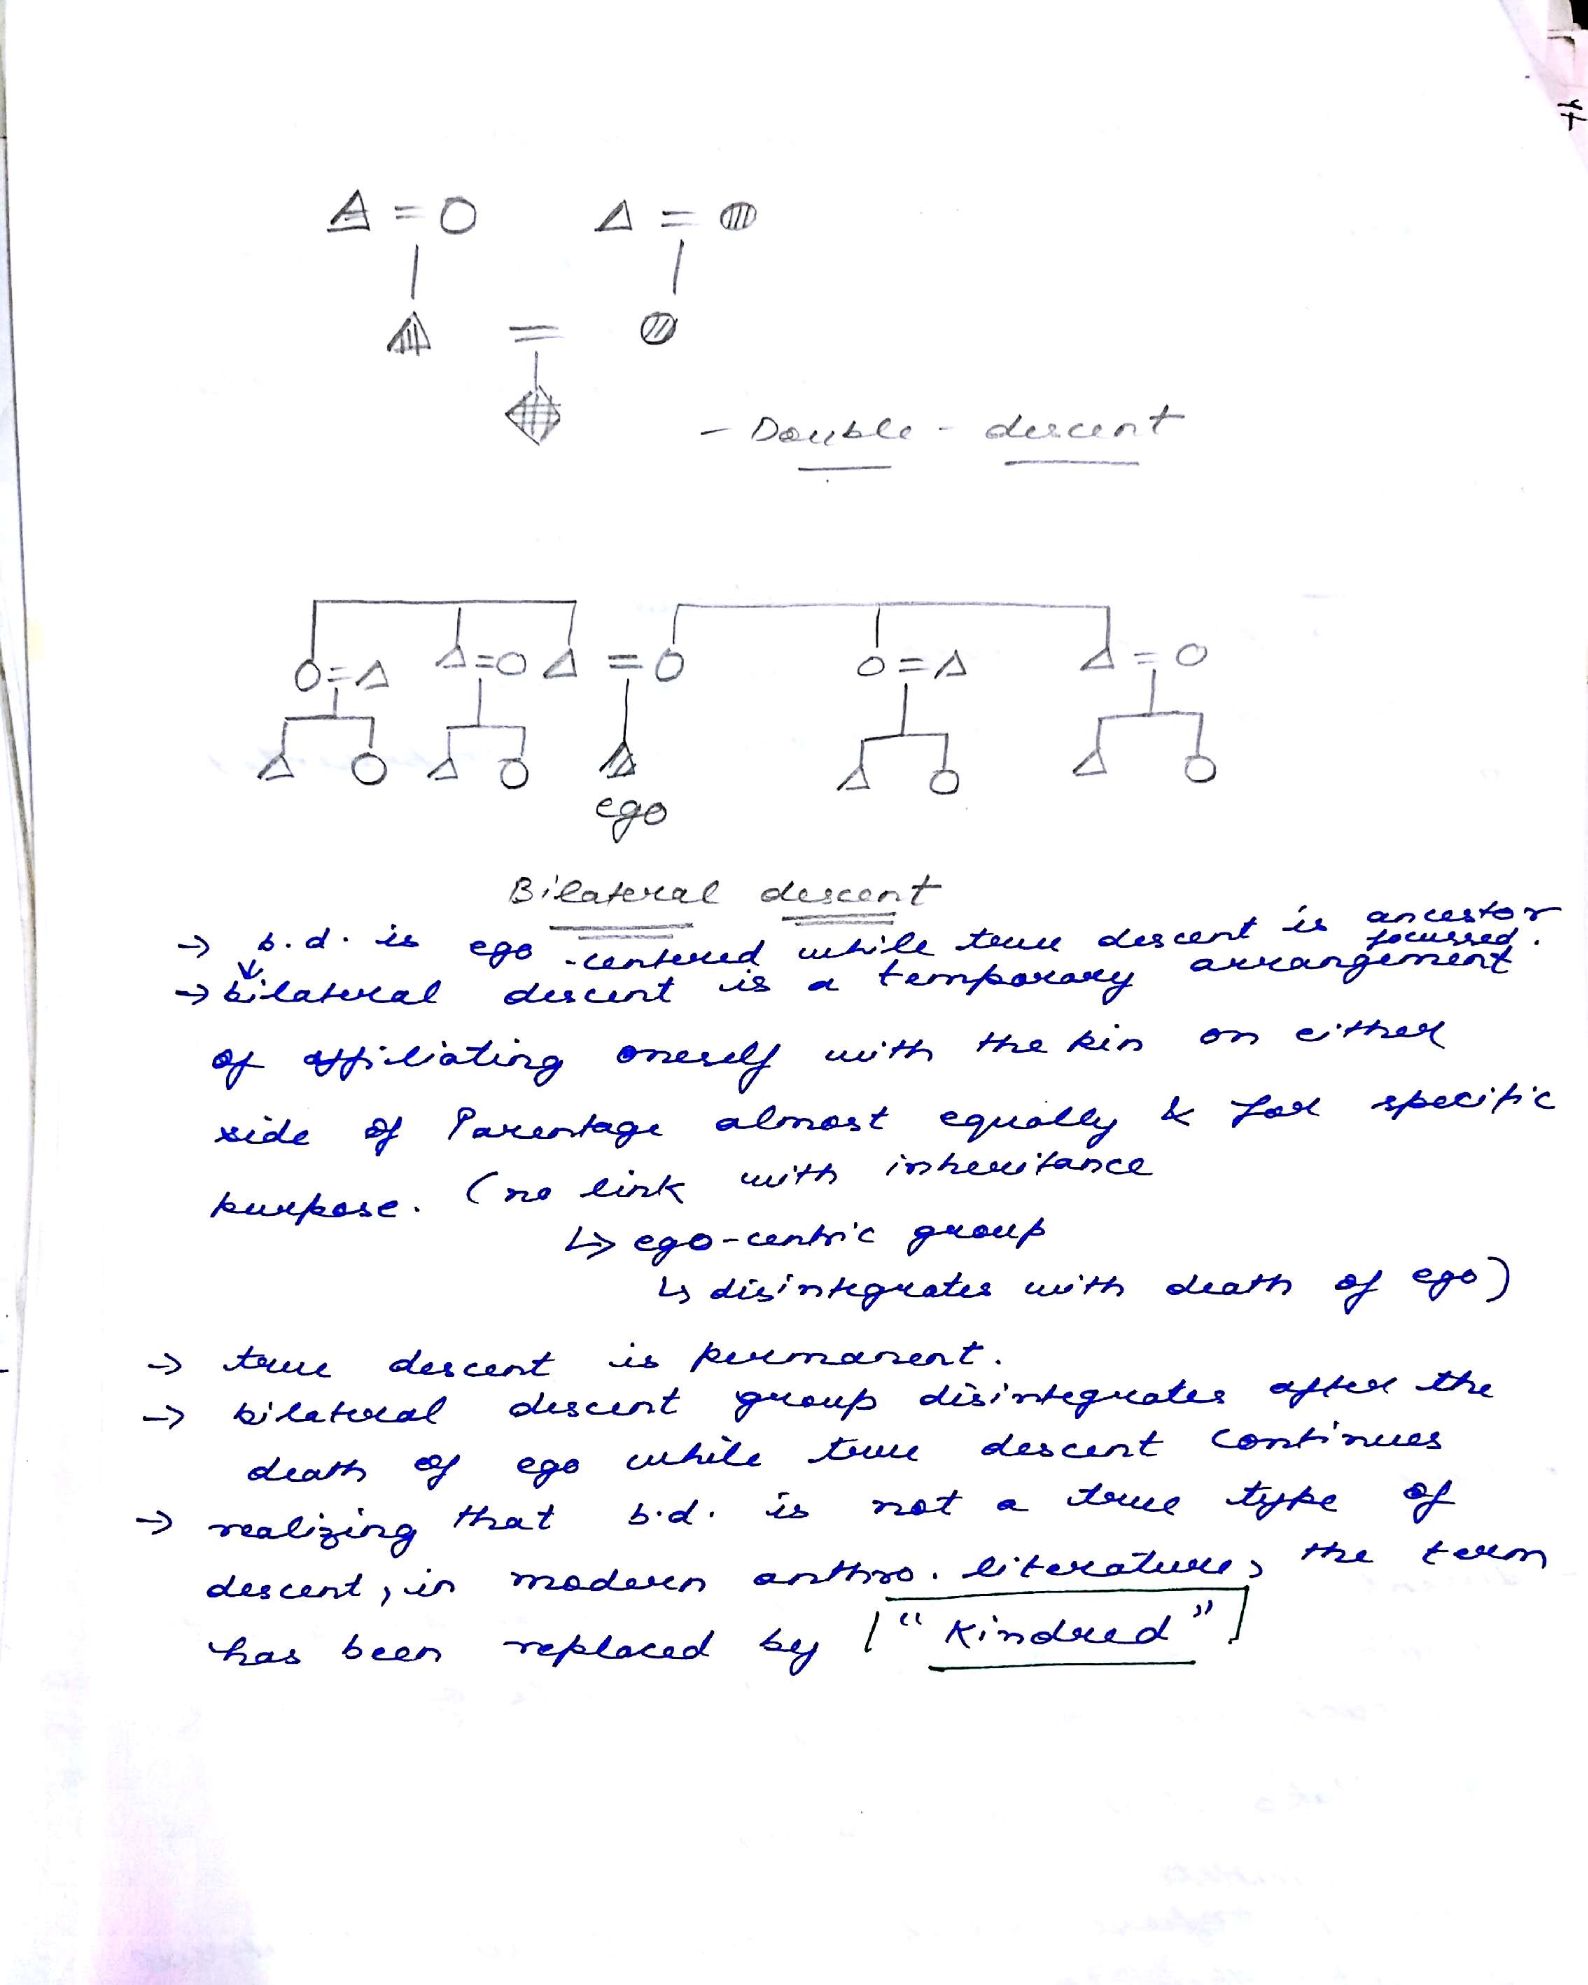 - Double - descent
ego
Bilateral descent
→ b.d. is ego-centered while true descent is ancestor focussed.
→ bilateral descent is a temporary arrangement
of affiliating oneself with the kin on either
side of Parentage almost equally & for specific
purpose. (no link with inheritance
↳ ego-centric group
↳ disintegrates with death of ego)
→ true descent is permanent.
→ bilateral descent group disintegrates after the
death of ego while true descent continues
→ realizing that b.d. is not a true type of
descent, in modern anthro. literature, the term
has been replaced by ["Kindred"]